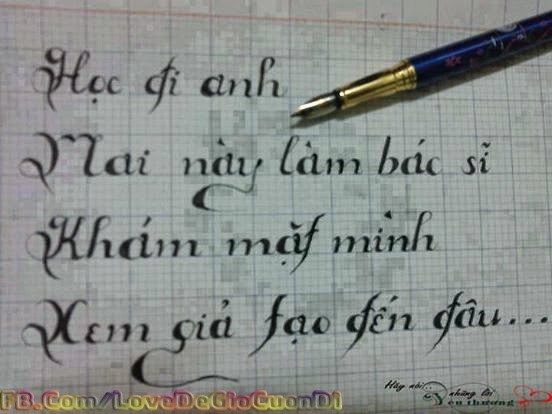 Học đi anh
Mai này làm bác sĩ
Khám mặt mình
Xem giả tạo đến đâu...
Hãy nói..
những lời
yêu thương
FB.Com/LoveDeGioCuonDi